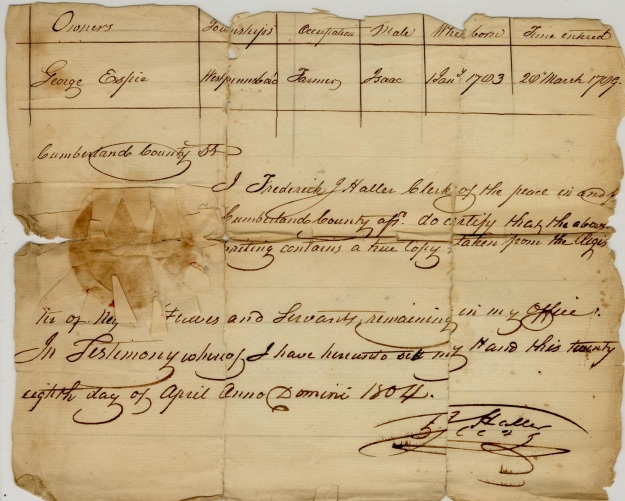 Owners Townships Occupation Male When born Time entered
George Espie Westpennsboro Farmer Isaac Jany 1783 28 March 1789.
Cumberland County SS
I Frederick J Haller Clerk of the peace in and
Cumberland County affd. do certify that the above
writing contains a true Copy taken from the Regis
ter of Neg and Servants remaining in my Office.
In Testimony whereof I have hereunto set my Hand this twenty
eighth day of April Anno Domini 1804.
F J Haller